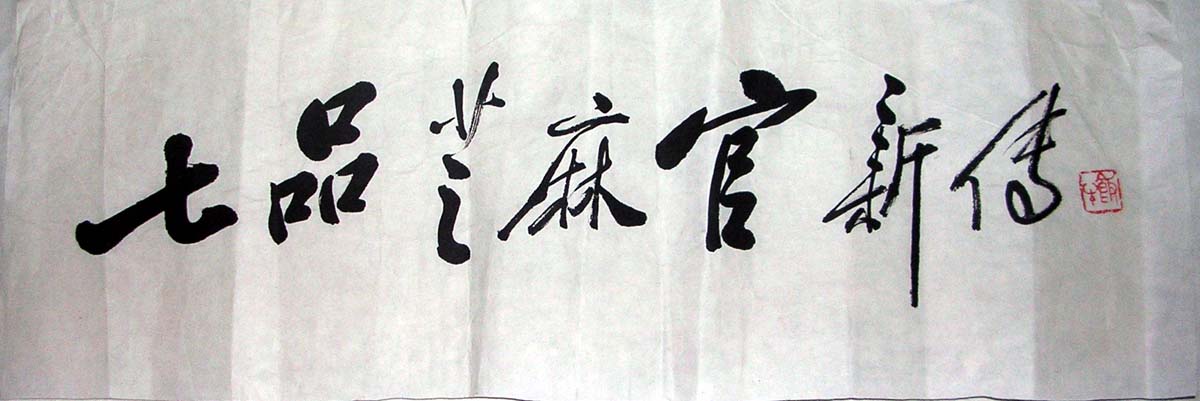 七品芝麻官新傳